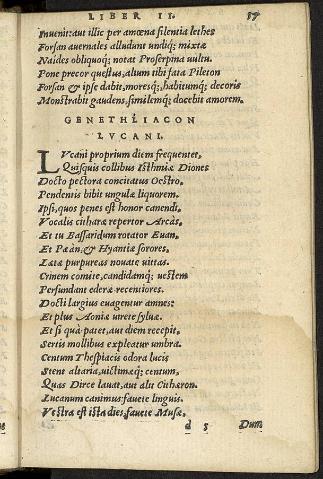 LIBER II. 57
Inuenit: aut illic per amœna silentia lethes
Forsan auernales alludunt undiq; mixtæ
Naides obliquoq; notat Proserpina uultu.
Pone precor questus, altum tibi fata Pileton
Forsan & ipse dabit, moresq;, habitumq; decoris
Monstrabit gaudens, similemq; docebit amorem.
GENETHLIACON
LVCANI.
LVcani proprium diem frequentet,
Quisquis collibus Isthmiæ Diones
Docto pectora concitatus Oestro,
Pendentis bibit ungulæ liquorem.
Ipsi, quos penes est honor canendi,
Vocalis citharæ repertor Arcas,
Et tu Bassaridum rotator Euan,
Et Pæan, & Hyantiæ sorores,
Lætæ purpureas nouate uittas,
Crinem comite, candidamq; uestem
Perfundant ederæ recentiores.
Docti largius euagentur amnes:
Et plus Aoniæ uirete syluæ.
Et si quà patet, aut diem recepit,
Sertis mollibus expleatur umbra.
Centum Thespiacis odora lucis
Stent altaria, uictimæq; centum,
Quas Dirce lauat, aut alit Cithæron.
Lucanum canimus: fauete linguis.
Vestra est ista dies, fauete Musæ,
d 5 Dum